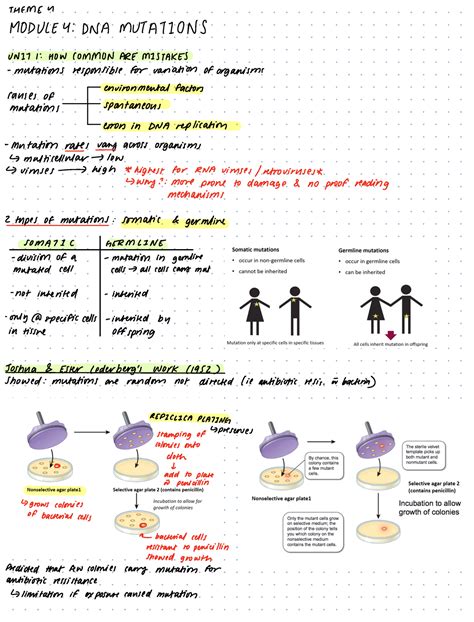 THEME 4
MODULE 4: DNA MUTATIONS
UNIT 1: HOW COMMON ARE MISTAKES
- mutations responsible for variation of organisms
causes of mutations
environmental factors
spontaneous
error in DNA replication
- Mutation rates vary across organisms
↳ multicellular → low
↳ viruses → high *highest for RNA viruses / retroviruses*
↳ Why?: more prone to damage & no proof reading
mechanisms
2 types of mutations: somatic & germline
SOMATIC
- division of a
mutated cell
- not inherited
- only @ specific cells
in tissue
GERMLINE
- mutation in germline
cells → all cells carry mut
- inherited
- inherited by
offspring
Somatic mutations
• occur in non-germline cells
• cannot be inherited
Mutation only at specific cells in specific tissues
Germline mutations
• occur in germline cells
• can be inherited
All cells inherit mutation in offspring
Joshua & Ester Lederberg's work (1952)
Showed: mutations are random not directed (ie antibiotic resis. in bacteria)
REPLICLICA PLATING
↳ preserves
stamping of
colonies onto
cloth
↓
add to plate
w penicillin
Nonselective agar plate1
↳ grows colonies
of bacterial cells
Selective agar plate 2 (contains penicillin)
Incubation to allow for
growth of colonies
↳ bacterial cells
resistant to penicillin
showed growth
By chance, this
colony contains
a few mutant
cells.
Nonselective agar plate1
The sterile velvet
template picks up
both mutant and
nonmutant cells.
Selective agar plate 2
(contains penicillin)
Incubation to allow
growth of colonies
Only the mutant cells grow
on selective medium; the
position of the colony tells
you which colony on the
nonselective medium
contains the mutant cells.
Predicted that few colonies carry mutation for
antibiotic resistance
↳ limitation if exposure caused mutation